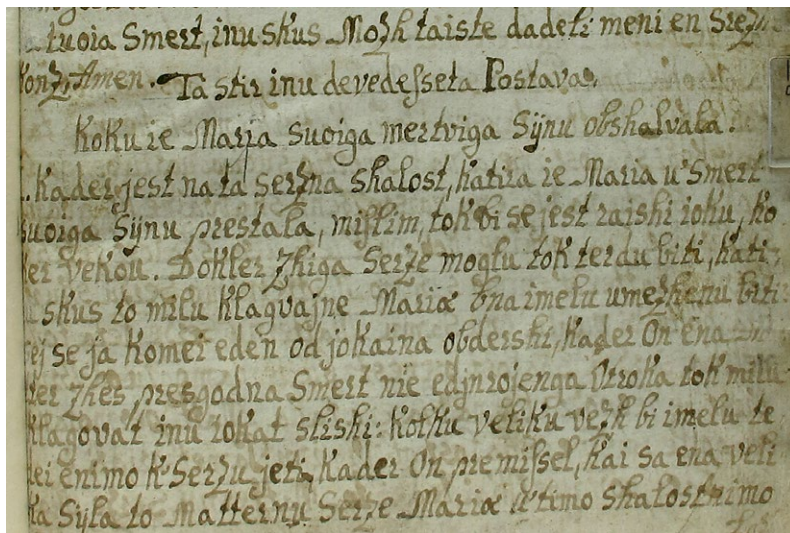 tvoia Smert, inu skus Mozh taiste dadeli meni en Srezhn
konz, Amen. Ta stir inu devedesseta Postava.
Koku ie Maria suoiga mertviga Sÿnu obshalvala.
Kader jest na ta serzna shalost, katira ie Maria u'Smert
suoiga Sÿnu prestala, mislim, tok bi se jest raishi ioku, ko
ker vekou. Dokler zhiga Serze moglu tok terdu biti, kati
skus to milu klagvajne Mariæ bna imelu umezhenu biti
sej se ja komei eden od jokaina obdershi, kader On ena
zhes presgodna Smert nie edjnrojenga Otroka tok milu
klagovat inu iokat slishi: kolku veliku vezh bi imelu te
enimo k'Serzu jeti, kader On premissel, kai sa ena veli
ka Syla to Matternu Serze Mariæ u'timo shalostnimo